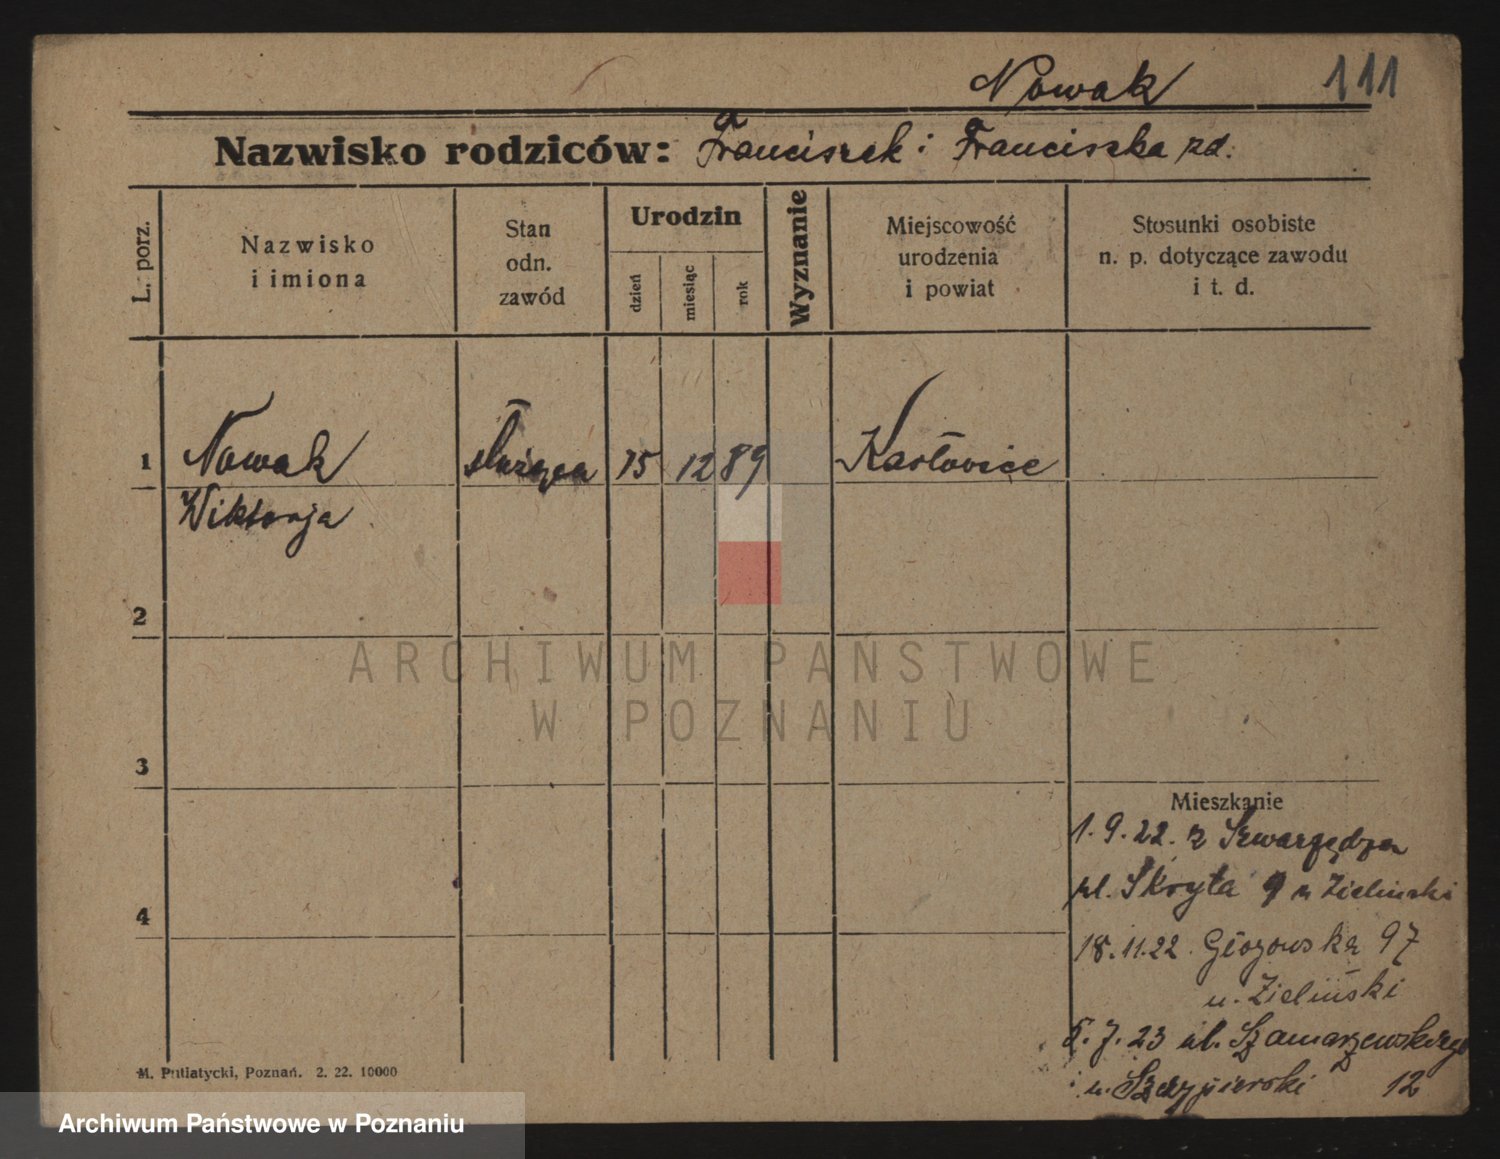 Nowak 111
Nazwisko rodziców: Franciszek i Franciszka zd.
L. porz.
Nazwisko
i imiona
Stan
odn.
zawód
Urodzin
dzień
miesiąc
rok
Wyznanie
Miejscowość
urodzenia
i powiat
Stosunki osobiste
n. p. dotyczące zawodu
i t. d.
1 Nowak służąca 15 12 89 Karłowice
Wiktorja
2
ARCHIWUM PAŃSTWOWE
W POZNANIU
3
Mieszkanie
1.9.22. z Szwarzędza
ul. Skryta 9 u Zieliński
4
18.11.22. Głogowska 97
u. Zieliński
5.7.23 ul. Szamarzewskiego
u. 12
M. Putiatycki, Poznań. 2. 22. 10000
Archiwum Państwowe w Poznaniu